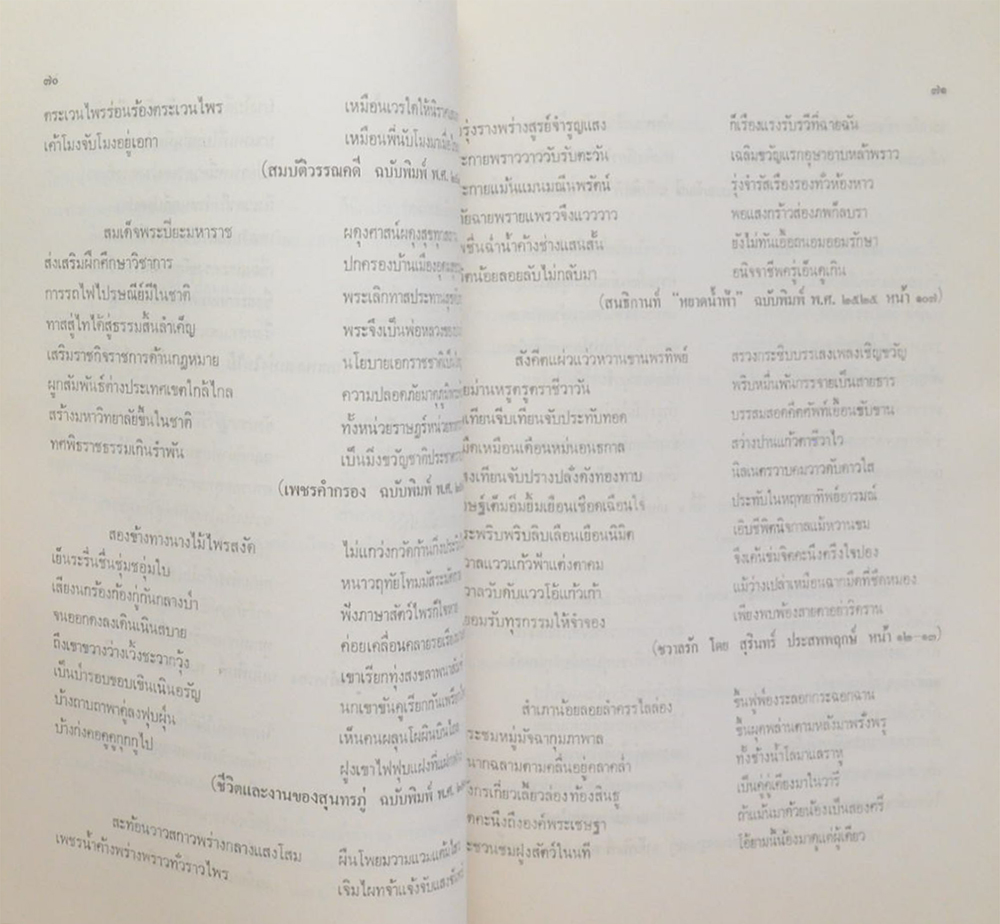 ๗๐
ตระเวนไพรร่อนร้องตระเวนไพร เหมือนเวรใดให้นิราศ
เค้าโมงจับโมงอยู่เอกา เหมือนพี่นับโมงมาเมื่อ
(สมบัติวรรณคดี ฉบับพิมพ์ พ.ศ.
สมเด็จพระปิยะมหาราช ผดุงศาสน์ผดุงสุข
ส่งเสริมฝึกศึกษาวิชาการ ปกครองบ้านเมือง
การรถไฟไปรษณีย์มีในชาติ พระเลิกทาสประทาน
ทาสสู่ไทได้สู่ธรรมสิ้นลำเค็ญ พระจึงเป็นพ่อหลวงของ
เสริมราชกิจราชการด้านกฎหมาย นโยบายเอกราชชาติ
ผูกสัมพันธ์ต่างประเทศเขตใกล้ไกล ความปลอดภัยมาคู่
สร้างมหาวิทยาลัยขึ้นในชาติ ทั้งหน่วยราษฎร์หน่วย
ทศพิธราชธรรมเกินรำพัน เป็นมิ่งขวัญชาติประชา
(เพชรคำกรอง ฉบับพิมพ์ พ.ศ.
สองข้างทางนางไม้ไพรสงัด ไม่แกว่งกวัดก้านกิ่ง
เย็นระรื่นชื่นชุ่มชอุ่มใบ หนาวฤทัยโทมนัส
เสียงนกร้องก้องกู่กันกลางป่า ฟังภาษาสัตว์ไพรก็ใจหาย
จนออกดงลงเดินเนินสบาย ค่อยเคลื่อนคลาย
ถึงเขาขวางว่างเวิ้งชะวากวุ้ง เขาเรียกทุ่งสงขลา
เป็นป่ารอบขอบเขินเนินอรัญ นกเขาขันคู่เรียกกัน
บ้างถาบถาพาคู่ลงฟุบฝุ่น เห็นคนผลุนโผผินบิน
บ้างก่งคอคูคูกุกกูไป ฝูงเขาไฟฟุบแฝง
(ชีวิตและงานของสุนทรภู่ ฉบับพิมพ์ พ.ศ.
สะท้อนวาวสกาวพร่างกลางแสงโสม ผืนโพยมวามแวม
เพชรน้ำค้างพร่างพราวทั่วราวไพร เจิมไผทจ้าแจ้งจับแสง
๗๑
รุ่งรางพร่างสูรย์จำรูญแสง ก็เรืองแรงรับรวีที่ฉายฉัน
ะกายพราววาววับรับตะวัน เฉลิมขวัญแรกอุษาอาบหล้าพราว
ะกายแม้นแมนมณีนพรัตน์ รุ่งจำรัสเรืองรองทั่วห้องหาว
ัยฉายพรายแพรวจึงแวววาว พอแสงกร้าวส่องภพก็ลบรา
ชื่นฉ่ำน้ำค้างช่างแสนสั้น ยังไม่ทันเอื้อถนอมออมรักษา
น้อยลอยลับไม่กลับมา อนิจจาชีพครู่เอ็นดูเกิน
(สนธิกานท์ "หยาดน้ำฟ้า" ฉบับพิมพ์ พ.ศ. ๒๕๒๕ หน้า ๑๐๗)
สังคีตแผ่วแว่วหวานขานพรทิพย์ สรวงกระซิบบรรเลงเพลงเชิญขวัญ
ม่านหรูตรูตราชีวาวัน พริบหมื่นพันกรรจายเป็นสายธาร
เทียนจีบเทียนจับประทับทอด บรรสมสอดคีตศัพท์เอื้อนขับขาน
มืดเหมือนเดือนหม่นอนธกาล สว่างปานแก้วตาชีวาไว
องเทียนจับปรางปลั่งดังทองทาบ นิลเนตรวาบคมวาวดับดาวไส
ษฐ์เต็มอิ่มยิ้มเยือนเชือดเฉือนใจ ประทับในหฤทยาทิพย์อารมณ์
ะพริบพริบลิบเลือนเยือนนิมิต เอิบชีพิตนิจกาลแม้หวานขม
วาลแววแก้วฟ้าแต่งตาคม จึงเค้นข่มจิตคะนึงตรึงใจปอง
วาลวับดับแววโอ้แก้วเก้า แม้ว่างเปล่าเหมือนฉากมืดที่ชืดหมอง
ยอมรับทุรกรรมให้จำจอง เพียงพบพ้องสายตาอย่าริดราน
(ชวาลรัก โดย สุรินทร์ ประสพพฤกษ์ หน้า ๑๒-๑๓)
สำเภาน้อยลอยลำครรไลล่อง ขึ้นฟูฟ่องระลอกกระฉอกฉาน
ะชมหมู่มัจฉากุมภาพาล ขึ้นผุดพล่านตามหลังมาพรั่งพรู
นากฉลามตามคลื่นอยู่คลาคล่ำ ทั้งช้างน้ำโลมาแลราหู
ังกรเกี่ยวเลี้ยวล่องท้องสินธู เป็นคู่คู่เคียงมาในวารี
คะนึงถึงองค์พระเชษฐา ถ้าแม้นมาด้วยน้องเป็นสองศรี
ะชวนชมฝูงสัตว์ในนที โอ้ยามนี้น้องมาดูแต่ผู้เดียว